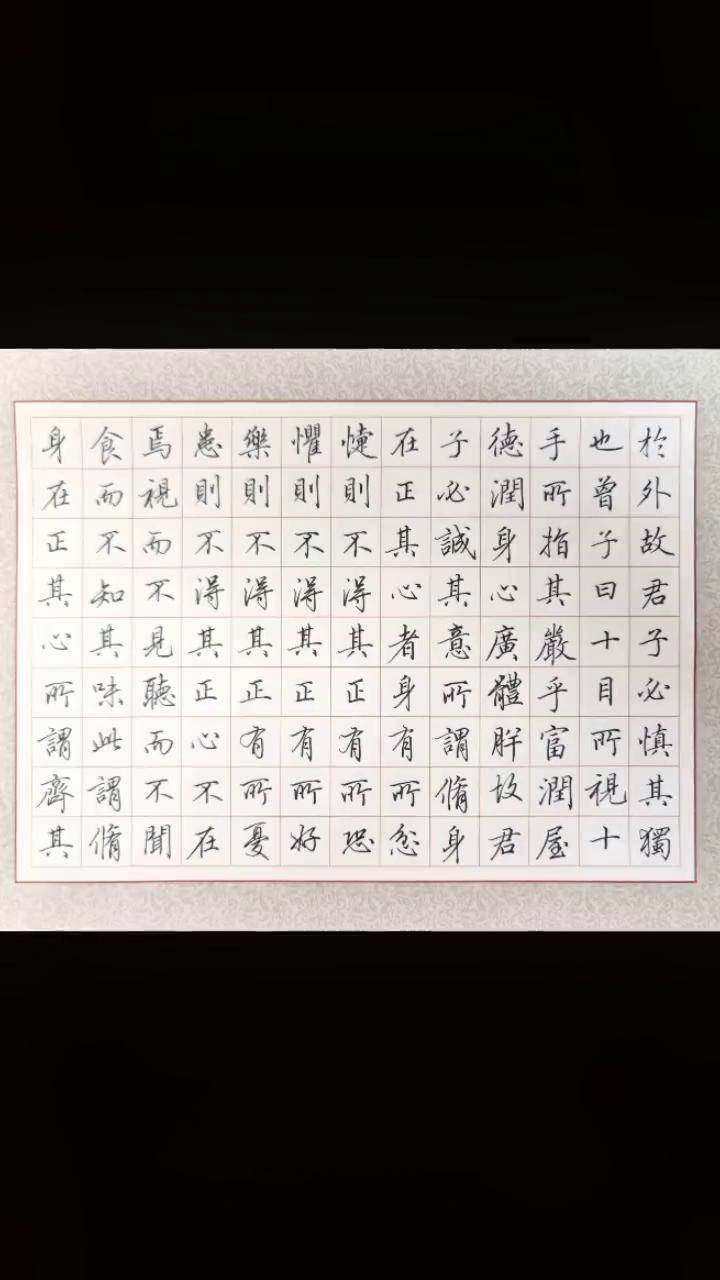 於外故君子必慎其獨
也曾子曰十目所視十
手所指其嚴乎富潤屋
德潤身心廣體胖故君
子必誠其意所謂脩身
在正其心者身有所忿
懥則不得其正有所恐
懼則不得其正有所好
樂則不得其正有所憂
患則不得其正心不在
焉視而不見聽而不聞
食而不知其味此謂脩
身在正其心所謂齊其